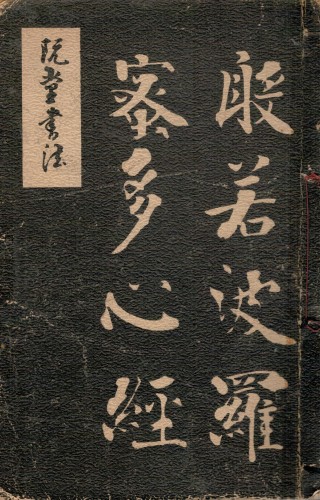 般若波羅
蜜多心經
阮堂書法